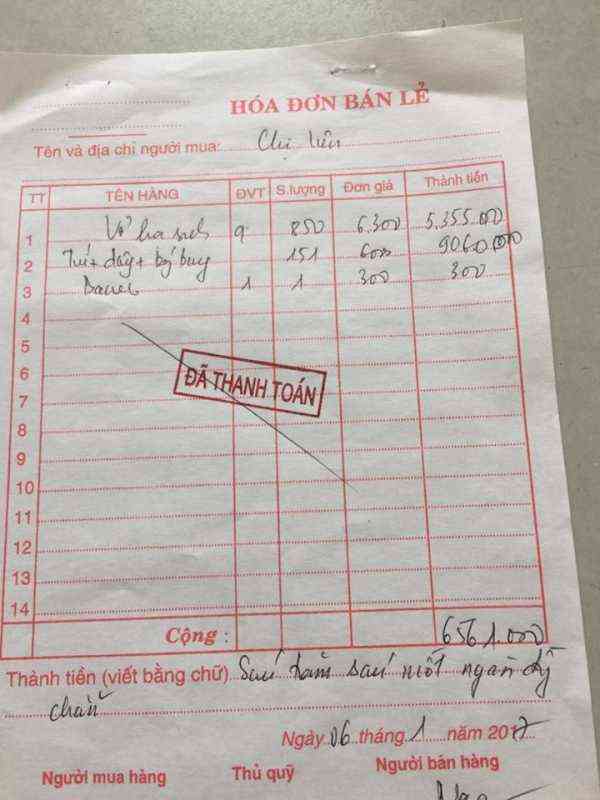 HÓA ĐƠN BÁN LẺ
Tên và địa chỉ người mua: Chị Liên
TT TÊN HÀNG ĐVT S.lượng Đơn giá Thành tiền
1 Vở q 850 6.300 5.355.000
2 Túi + dây + 151 6000
3 1 1 300 300
4
5
6
ĐÃ THANH TOÁN
7
8
9
10
11
12
13
14
Cộng : 6561.000
Thành tiền (viết bằng chữ) Sáu trăm sáu mốt ngàn
chẵn
Ngày 06 tháng 1 năm 2017
Người mua hàng Thủ quỹ Người bán hàng